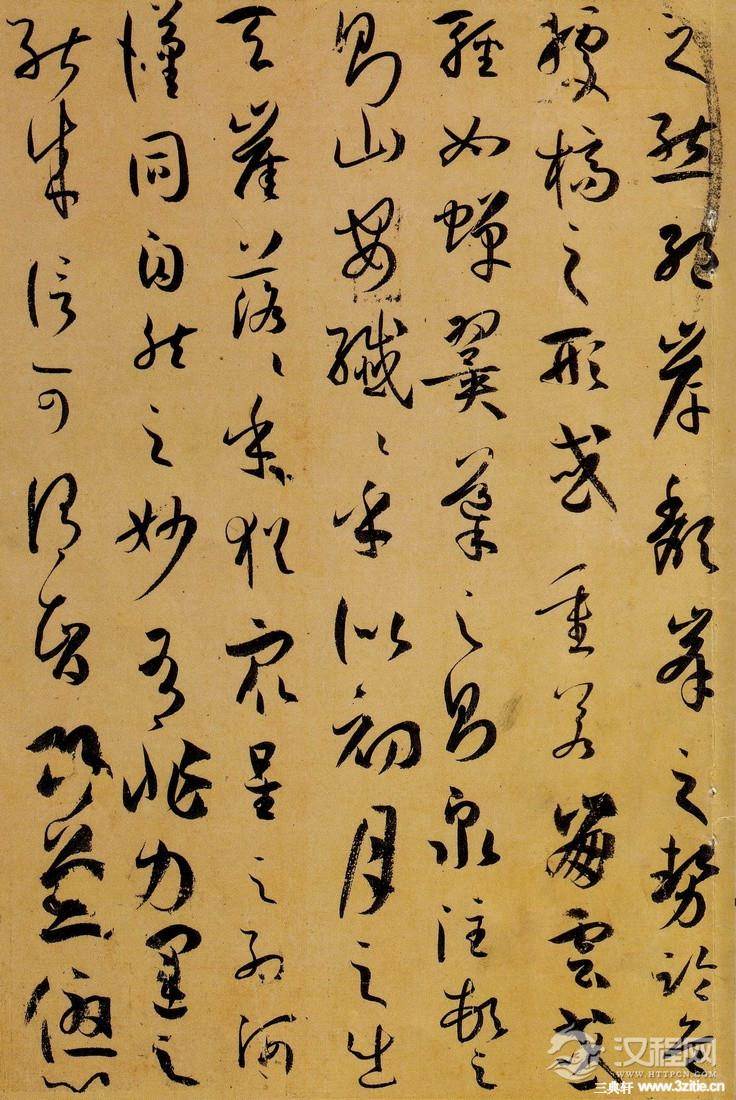 之態絕岸頹峯之勢臨危
據槁之形或重若崩雲或
輕如蟬翼導之則泉注頓之
則山安纖〻乎似初月之出
天崖落〻乎猶衆星之列河
漢同自然之妙有非力運之
能成信可謂智巧兼優心
汉程网
WWW.HTTPCN.COM
三典轩 www.3zitie.cn